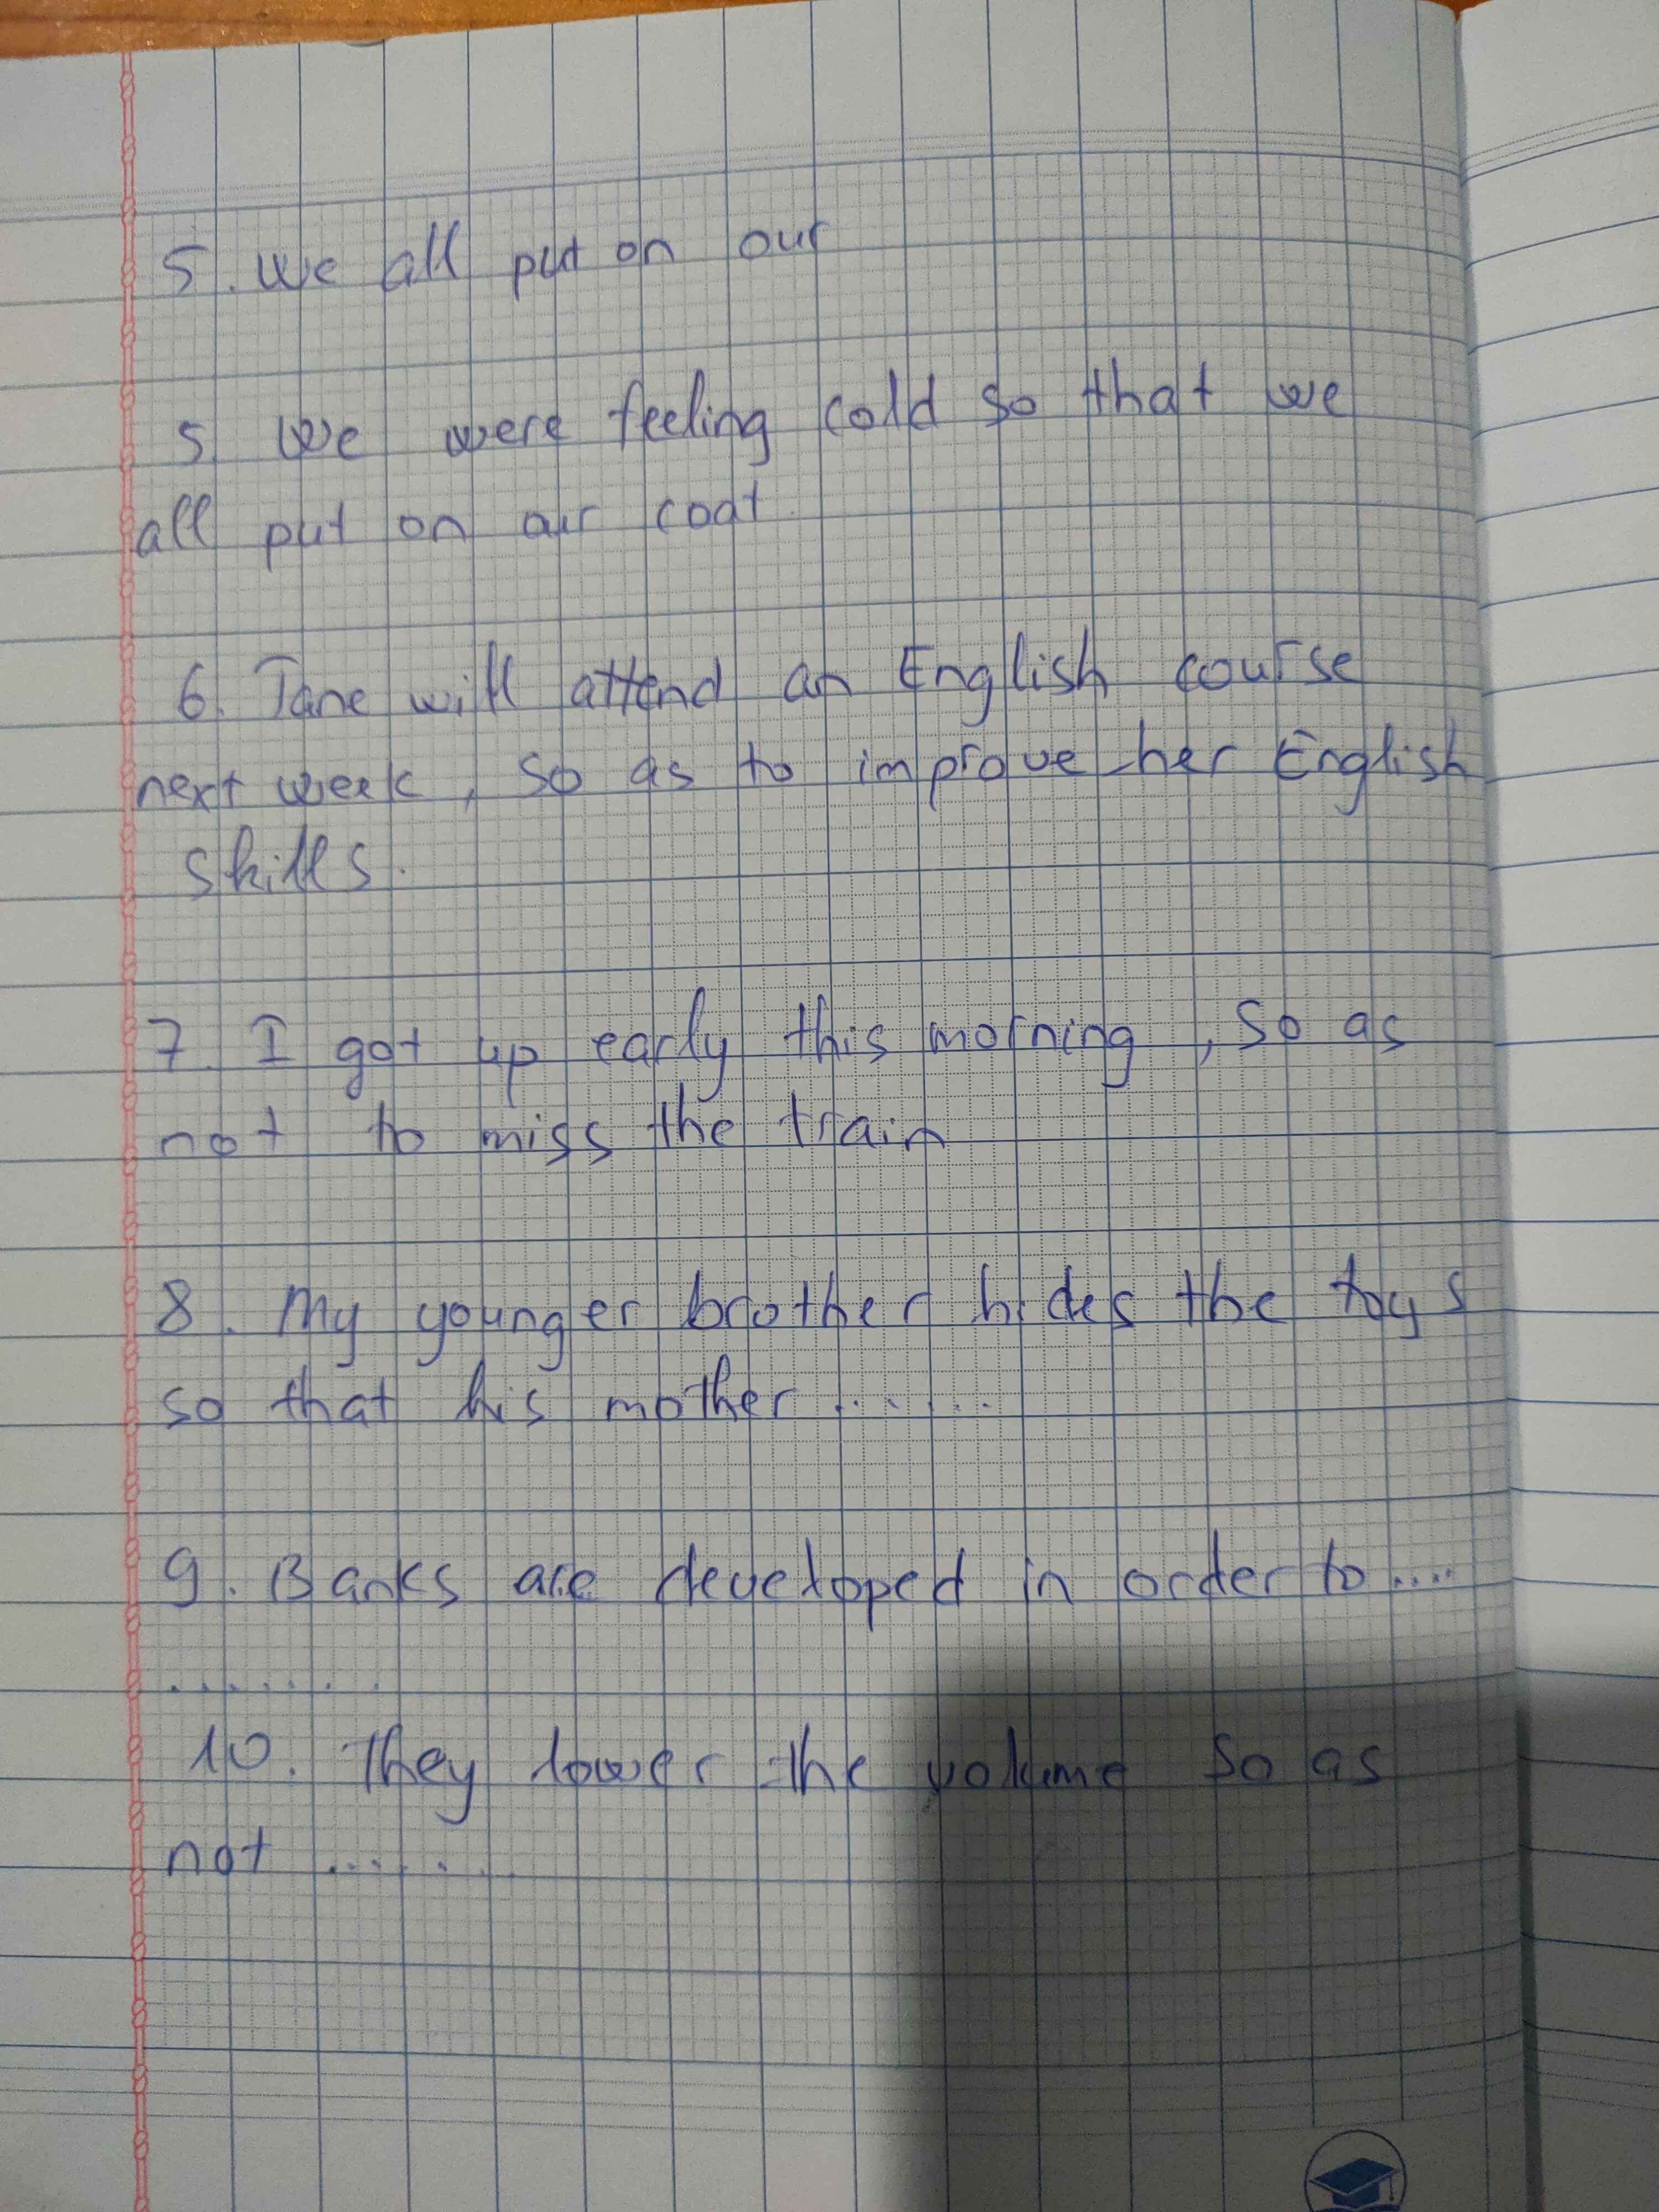 5. We all put on our
5. We were feeling cold so that we
all put on our coat.
6. Jane will attend an English course
next week, so as to improve her English
skills.
7. I got up early this morning, so as
not to miss the train
8. My younger brother hides the toys
so that his mother .......
9. Banks are developed in order to ....
.......
10. They lower the volume so as
not .......